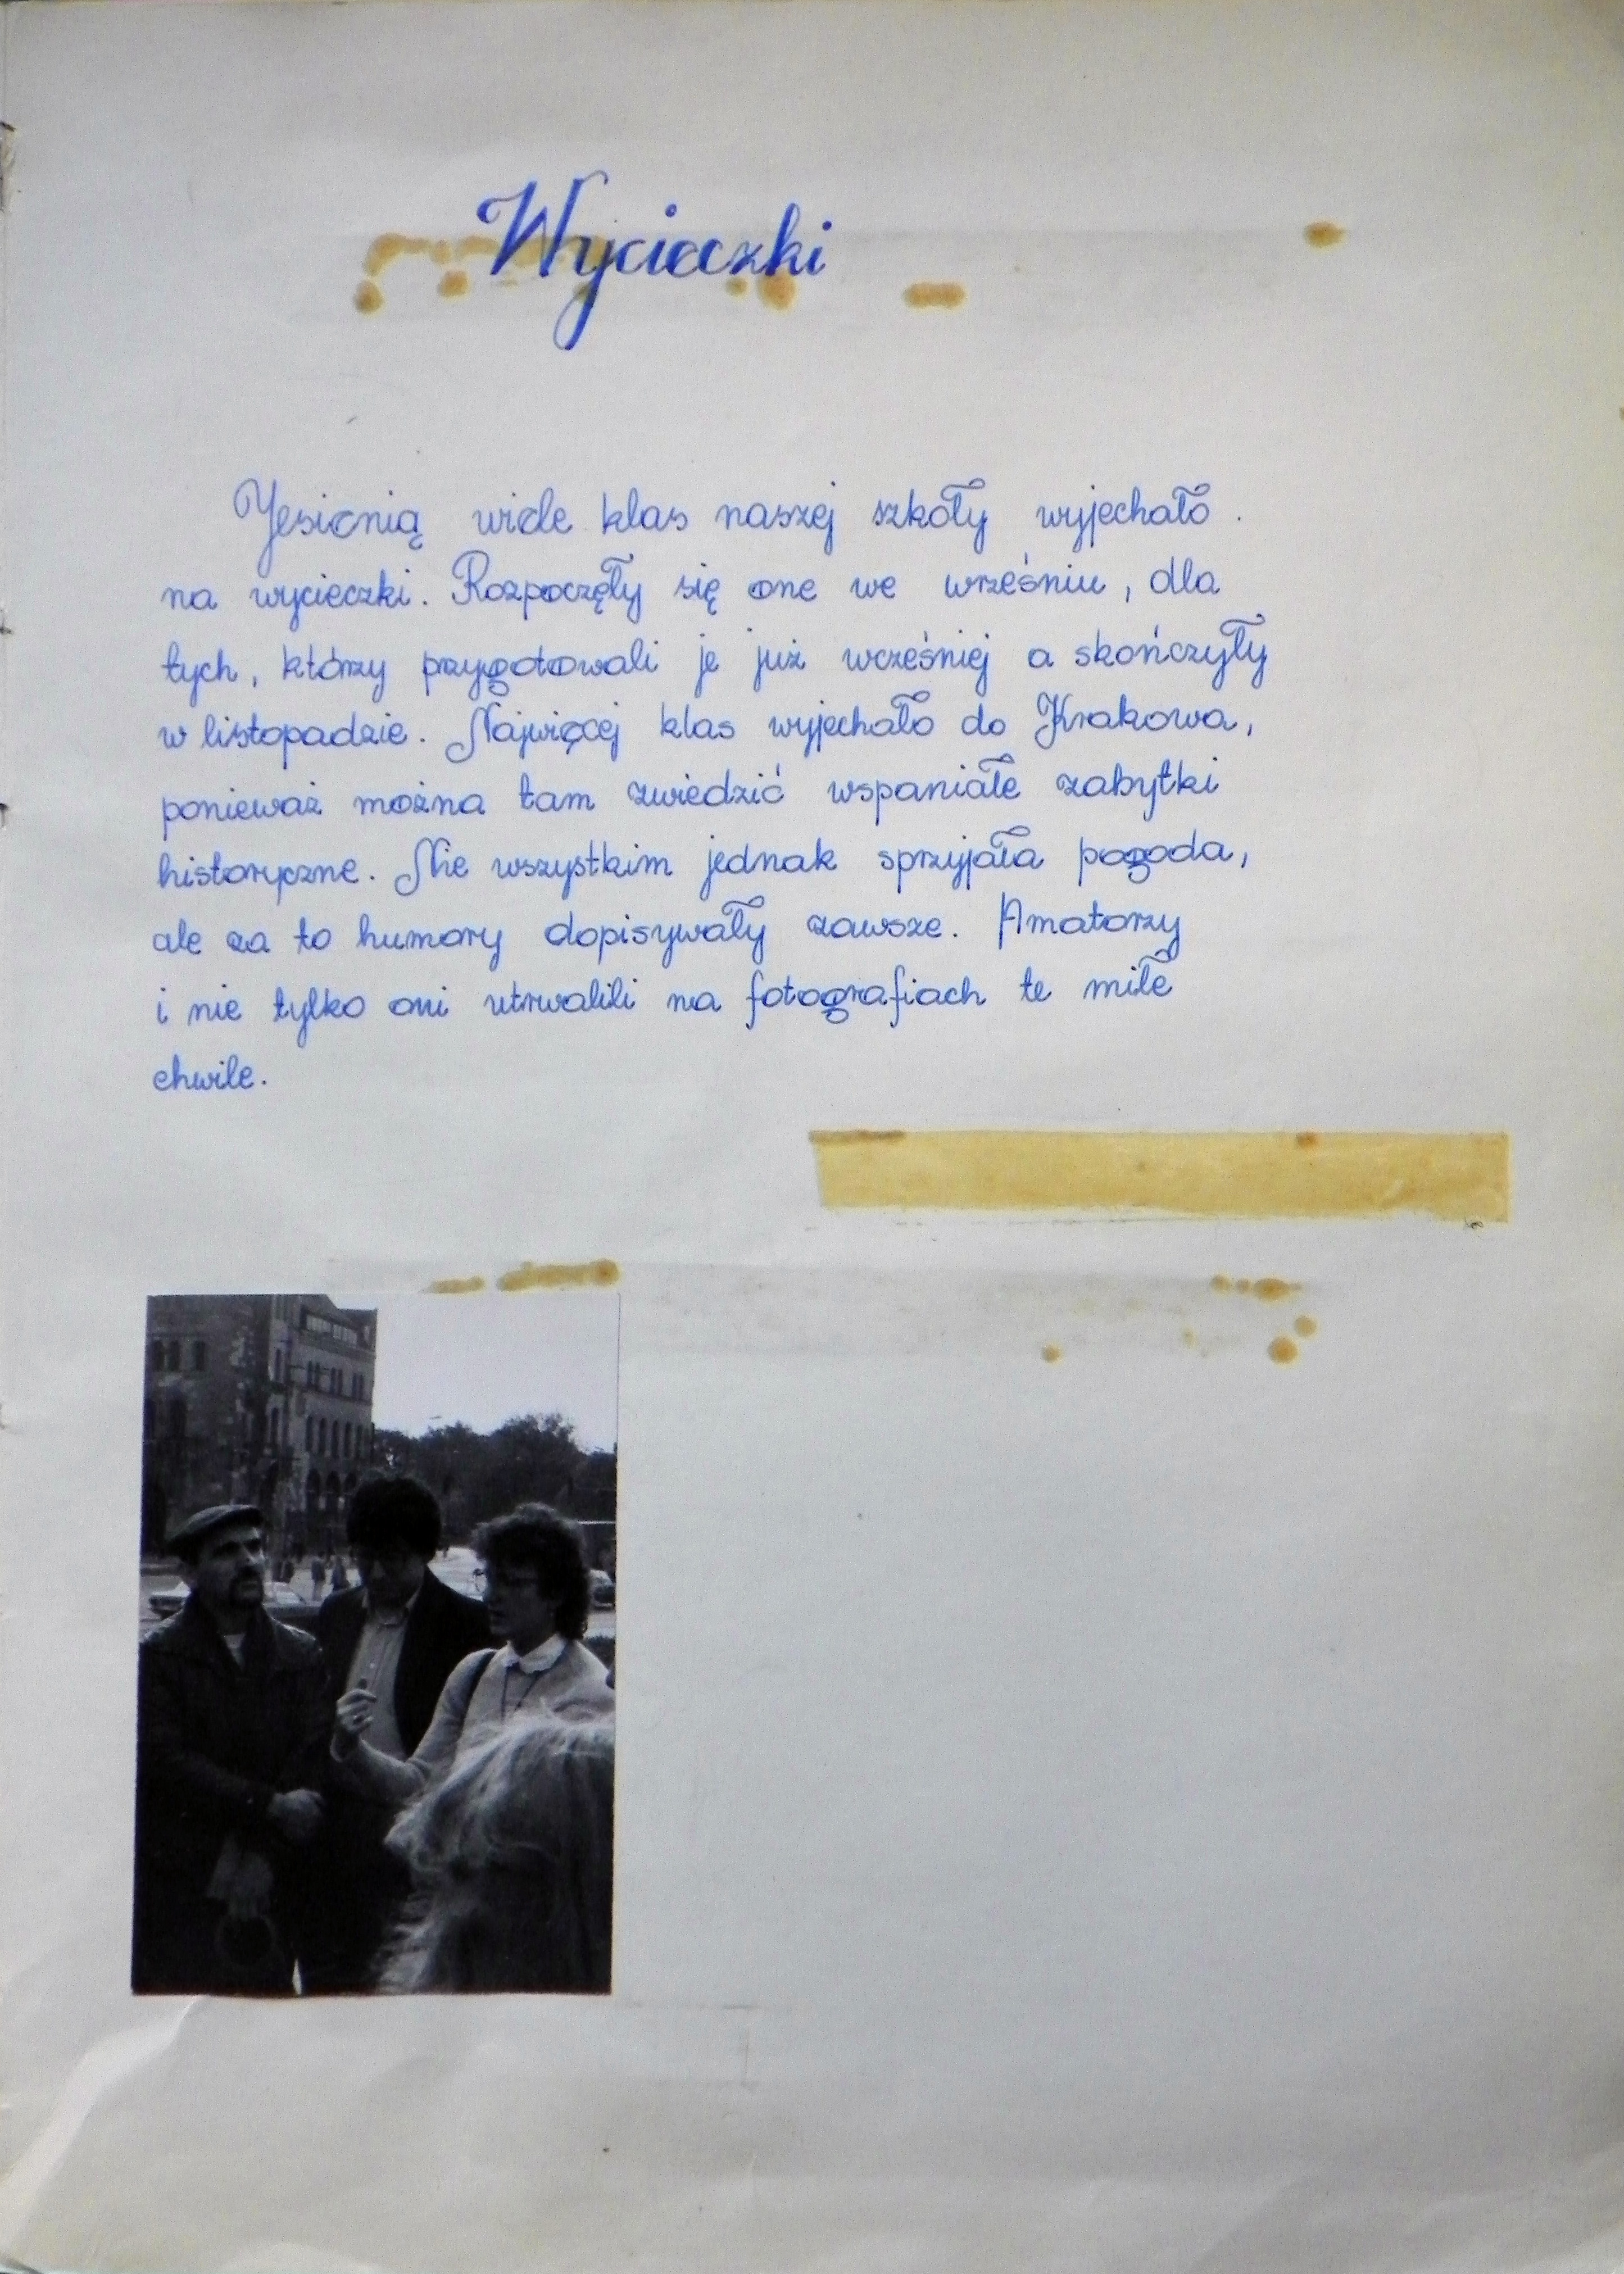 Wycieczki
Jesienią wiele klas naszej szkoły wyjechało
na wycieczki. Rozpoczęły się one we wrześniu, dla
tych, którzy przygotowali je już wcześniej a skończyły
w listopadzie. Najwięcej klas wyjechało do Krakowa,
ponieważ można tam zwiedzić wspaniałe zabytki
historyczne. Nie wszystkim jednak sprzyjała pogoda,
ale za to humory dopisywały zawsze. Amatorzy
i nie tylko oni utrwalili na fotografiach te miłe
chwile.